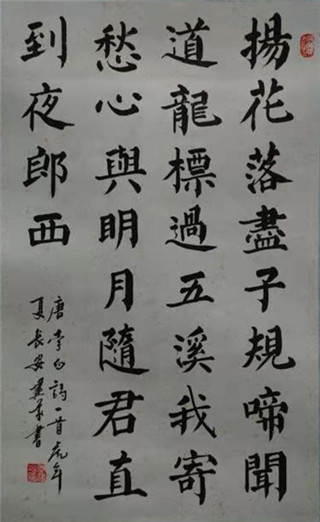 揚花落盡子規啼聞
道龍標過五溪我寄
愁心與明月隨君直
到夜郎西
唐李白詩一首虎年
夏長安書